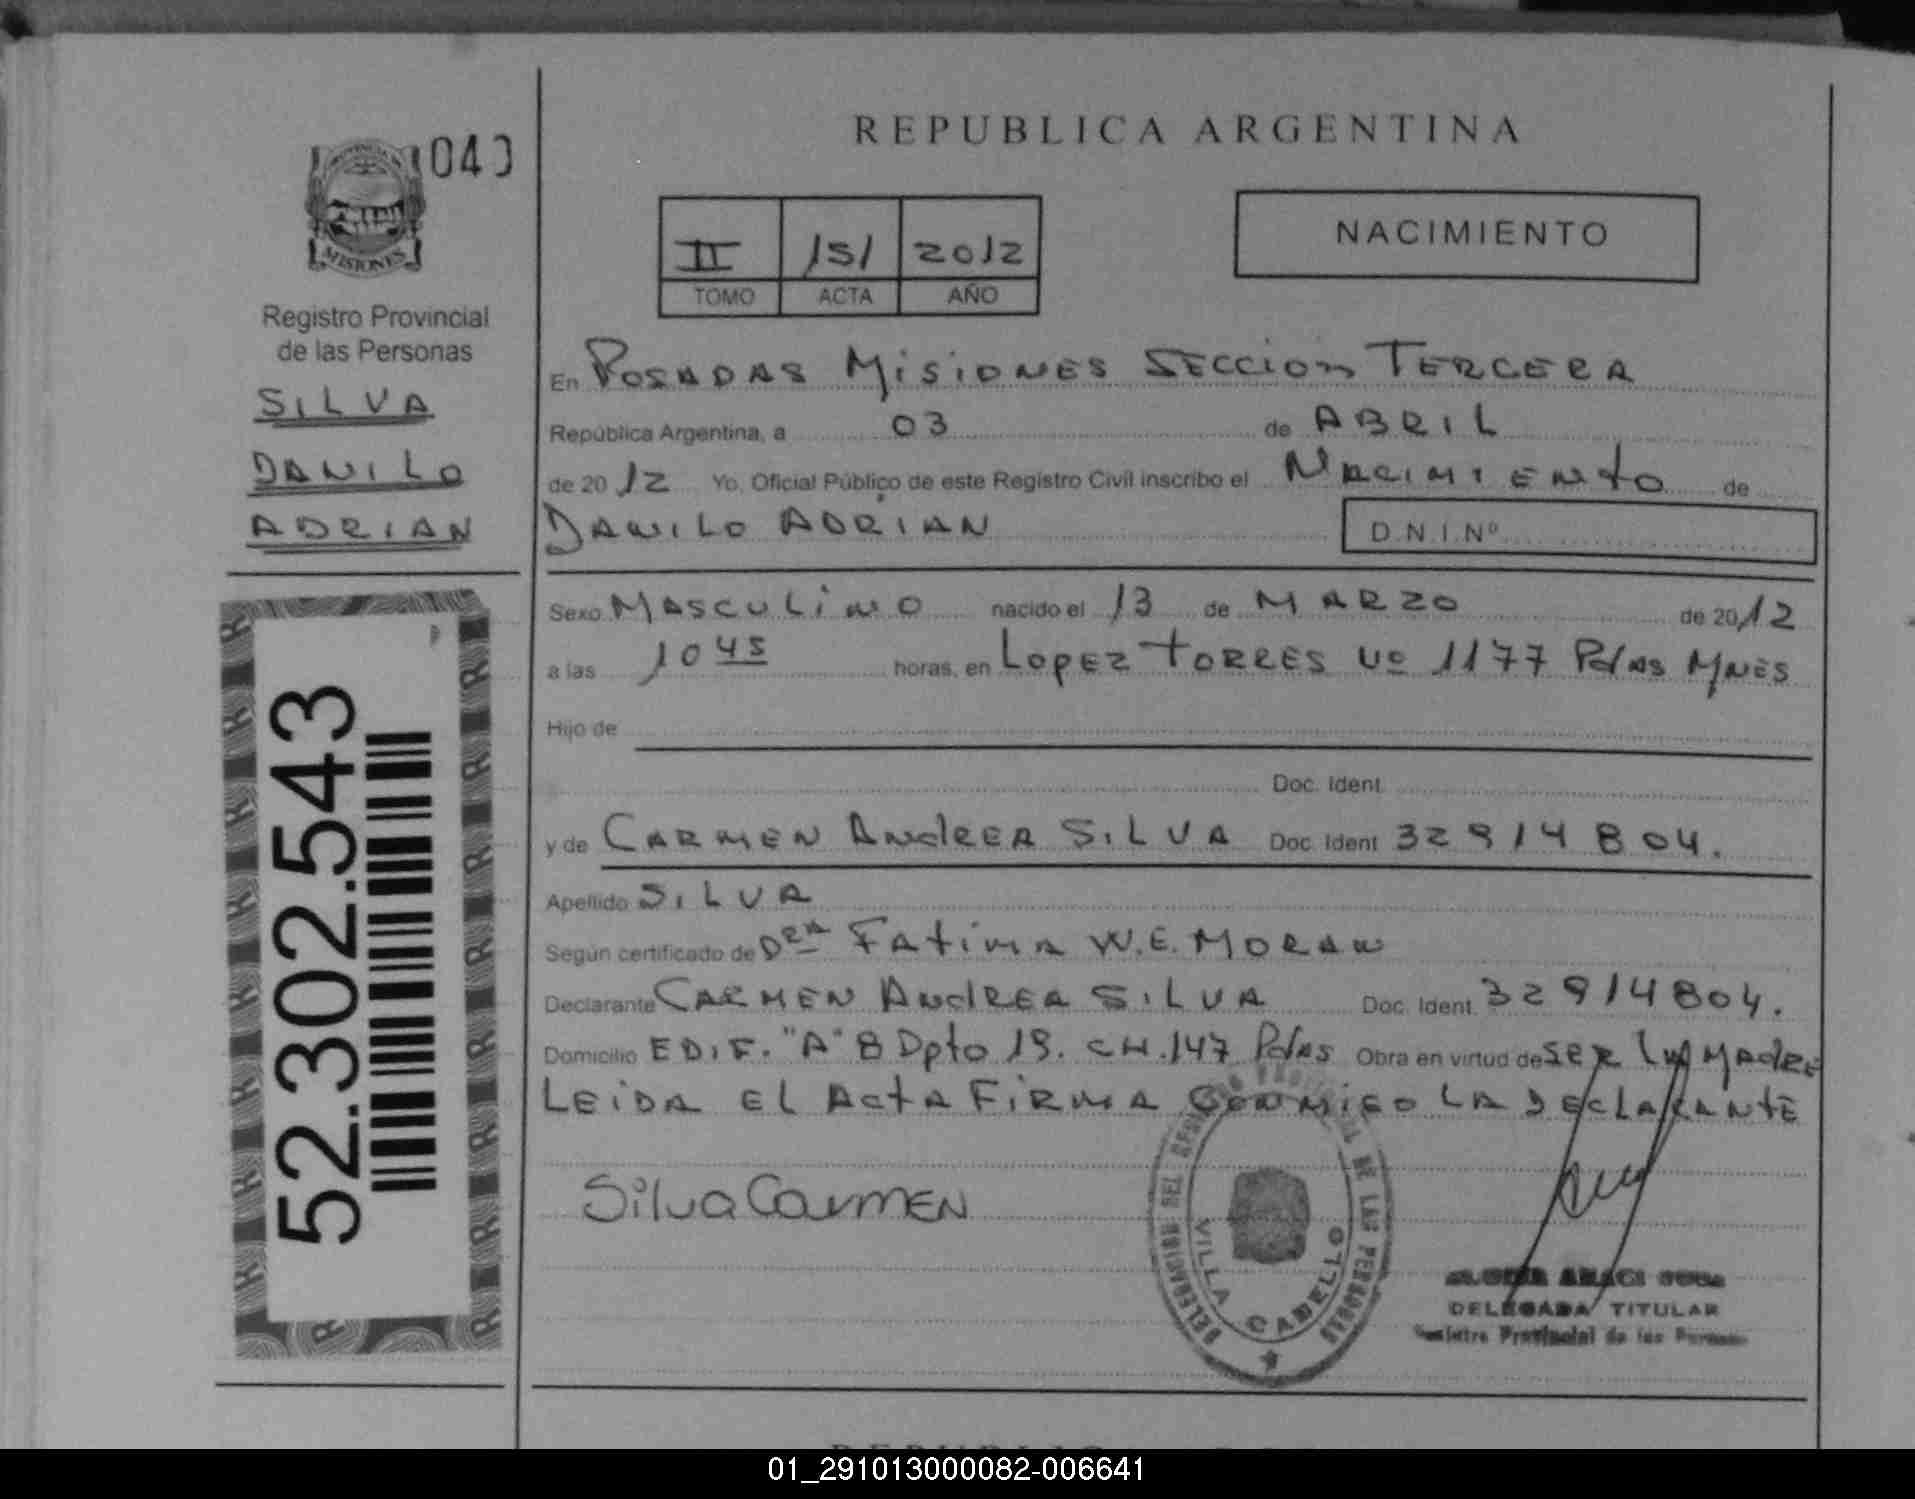 REPUBLICA ARGENTINA
040
MISIONES
Registro Provincial
de las Personas
SILVA
DANILO
ADRIAN
52.302.543
II 151 2012
TOMO ACTA AÑO
NACIMIENTO
En POSADAS MISIONES SECCION TERCERA
República Argentina, a 03 de ABRIL
de 2012 Yo, Oficial Público de este Registro Civil inscribo el NACIMIENTO de
DANILO ADRIAN D.N.I.Nº
Sexo MASCULINO nacido el 13 de MARZO de 2012
a las 10 45 horas, en LOPEZ TORRES Nº 1177 Pdas MNES
Hijo de
Doc. Ident.
y de CARMEN ANDREA SILVA Doc. Ident 32914804.
Apellido SILVA
Según certificado de DRA FATIMA W.E. MORAN
Declarante CARMEN ANDREA SILVA Doc. Ident. 32914804.
Domicilio EDIF. "A" 8 Dpto 19. CH.147 Pdas Obra en virtud de SER LA MADRE
LEIDA EL ACTA FIRMA CONMIGO LA DECLARANTE
Silva CarmEN
DELEGACION DEL REGISTRO PROVINCIAL DE LAS PERSONAS
VILLA CABELLO
DELEGADA TITULAR
Registro Provincial de las Personas
01_291013000082-006641